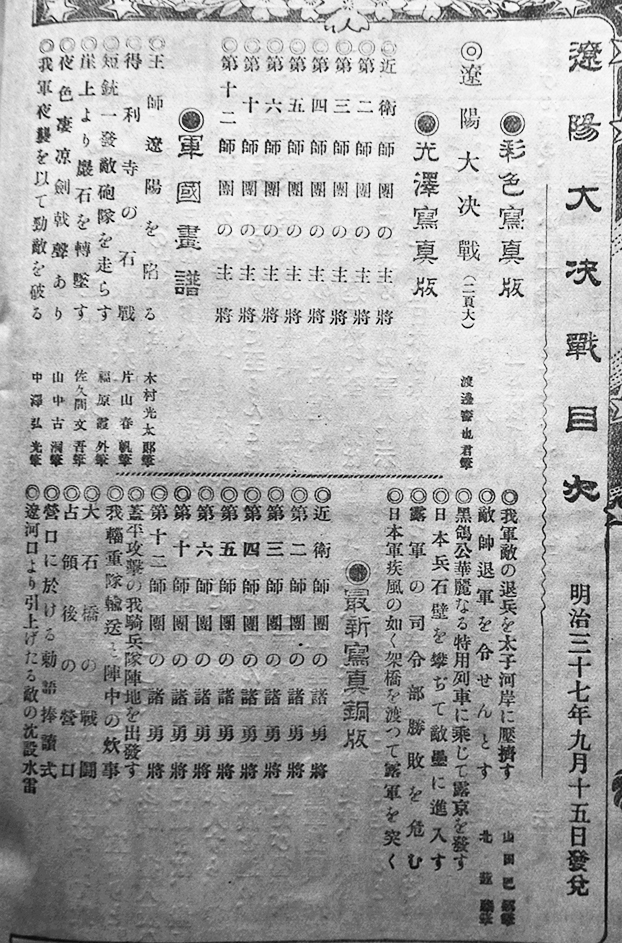 遼陽大决戰目次
明治三十七年九月十五日發兌
◉彩色寫真版
◎遼陽大决戰(二頁大)
◉光澤寫真版
◎近衛師團の主將
◎第二師團の主將
◎第三師團の主將
◎第四師團の主將
◎第五師團の主將
◎第六師團の主將
◎第十師團の主將
◎第十二師團の主將
◉軍國畫譜
◎王師遼陽を陷る 木村光太郎筆
◎得利寺の石戰 片山春帆筆
◎短銃一發敵砲隊を走らす 福原霞外筆
◎崖上より巖石を轉墜す 佐久間文吾筆
◎夜色凄凉劍戟聲あり 山中古洞筆
◎我軍夜襲を以て勁敵を破る 中澤弘光筆
◎我軍敵の退兵を太子河岸に壓擠す
◎敵帥退軍を令せんとす
◎黑鳩公華麗なる特用列車に乘じて露京を發す
◎日本兵石壁を攀ぢて敵壘に進入す
◎露軍の司令部勝敗を危む
◎日本軍疾風の如く架橋を渡つて露軍を突く
◉最新寫真銅版
◎近衛師團の諸勇將
◎第二師團の諸勇將
◎第三師團の諸勇將
◎第四師團の諸勇將
◎第五師團の諸勇將
◎第六師團の諸勇將
◎第十師團の諸勇將
◎第十二師團の諸勇將
◎蓋平攻擊の我騎兵隊陣地を出發す
◎我輜重隊輸送と陣中の炊事
◎大石橋の戰鬪
◎占領後の營口
◎營口に於ける勅語捧讀式
◎遼河口より引上げたる敵の沈設水雷